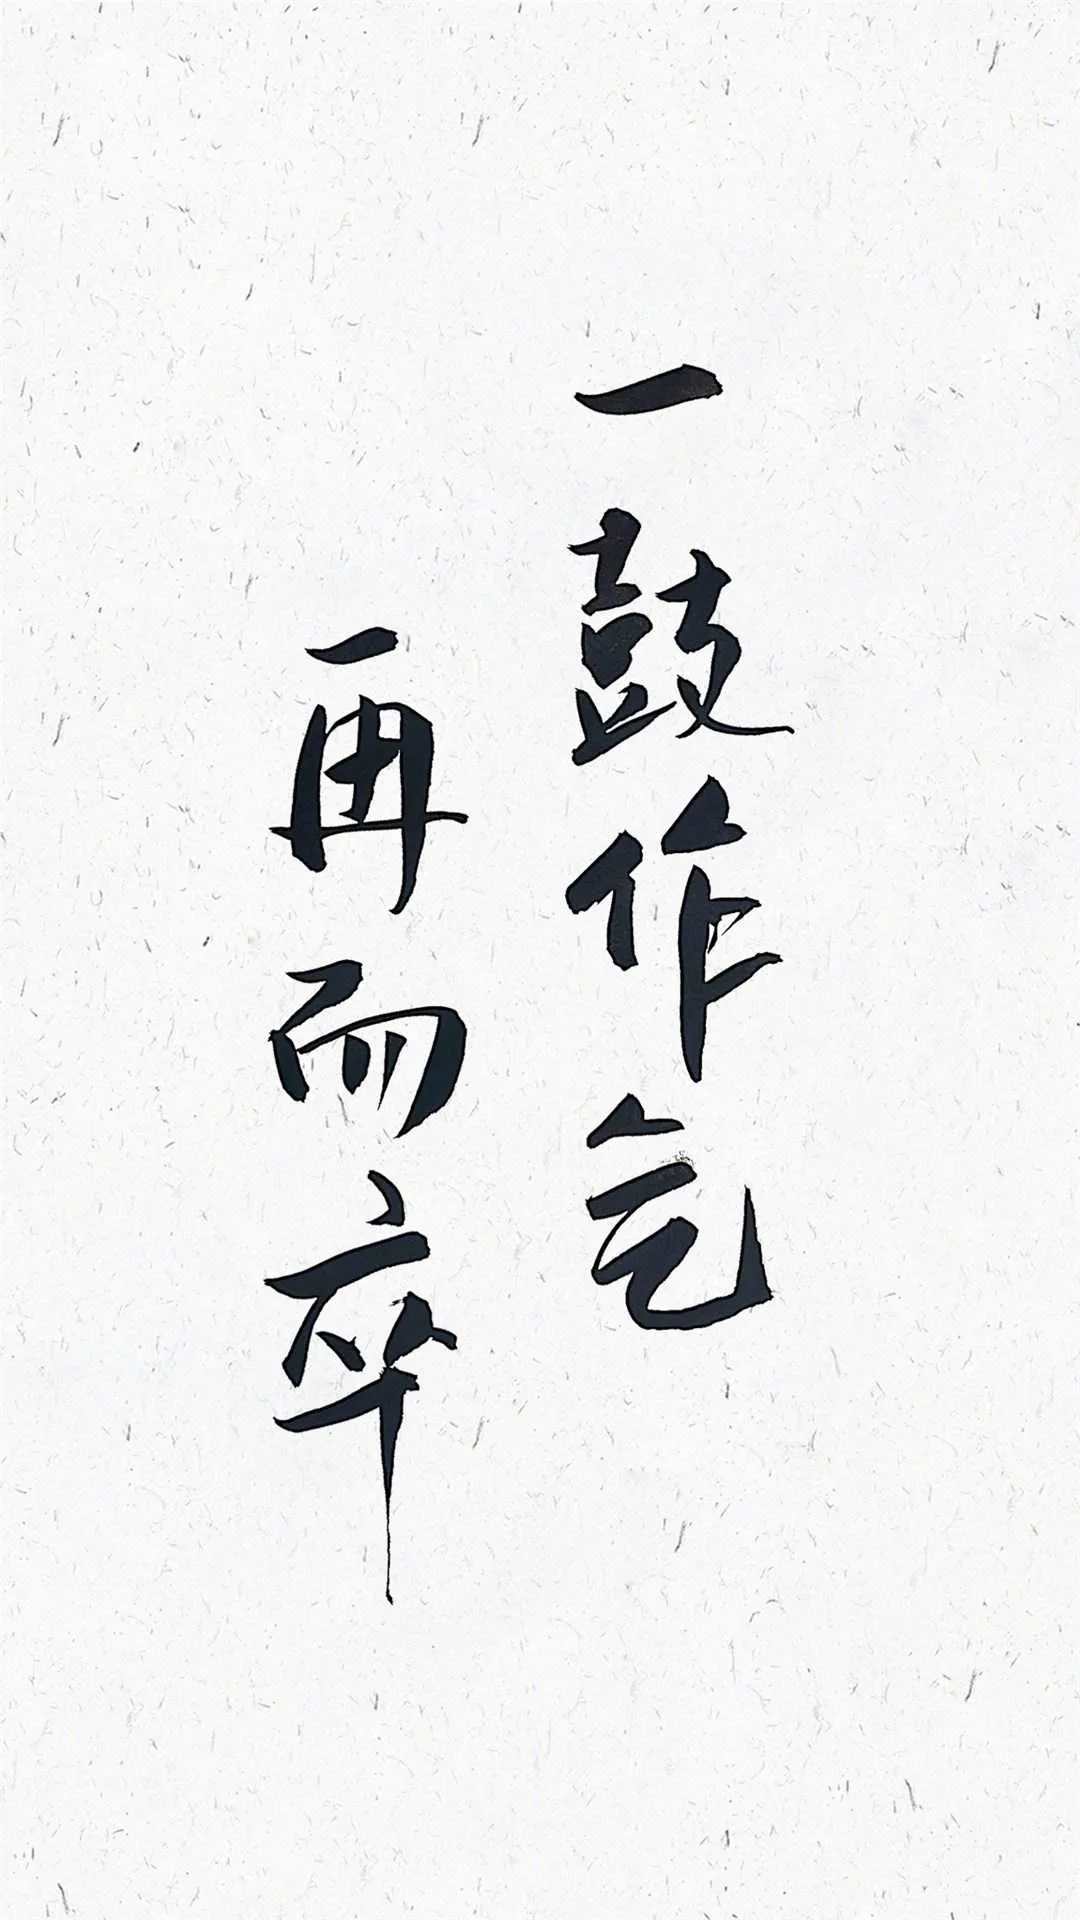 一鼓作乞
再而卒